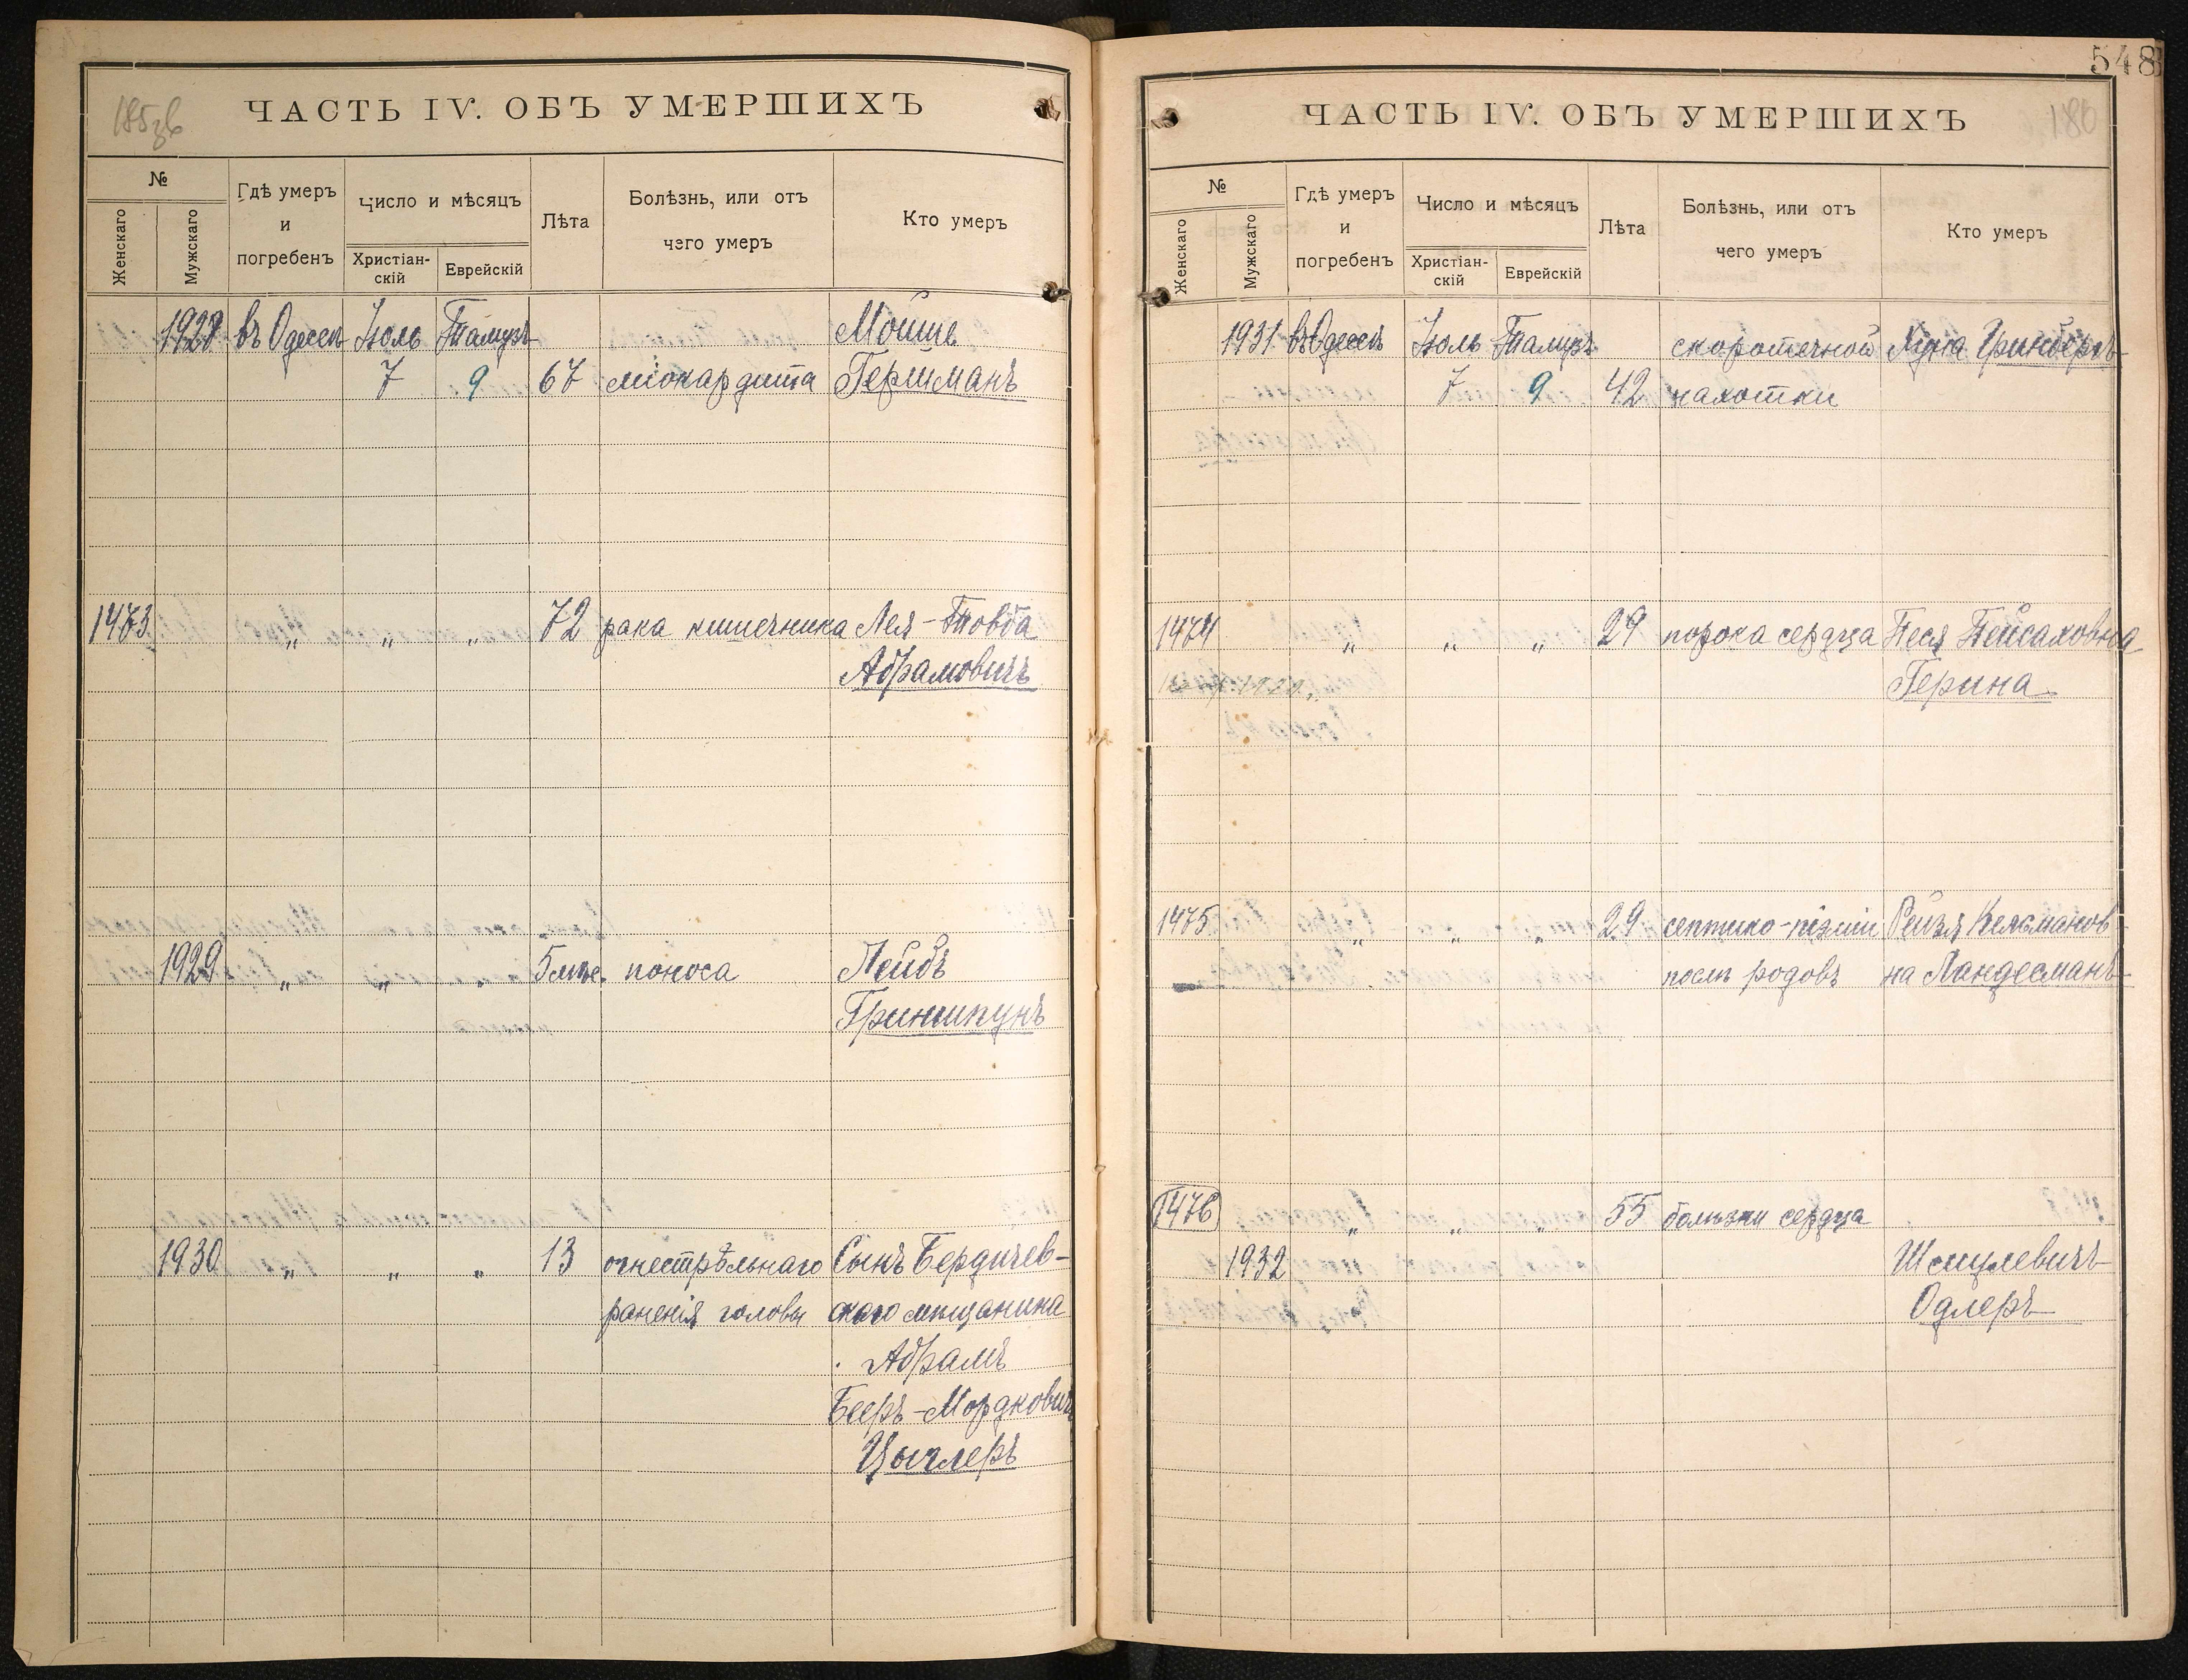 548
185об
ЧАСТЬ IV. ОБЪ УМЕРШИХЪ
№
Женскаго
Мужскаго
Гдѣ умеръ
и
погребенъ
Число и мѣсяцъ
Христіан-
скій
Еврейскій
Лѣта
Болѣзнь, или отъ
чего умеръ
Кто умеръ
1928 въ Одессѣ Іюль Тамузъ Мойше
7 9 67 міокардита Гершманъ
1473 „ „ „ 72 рака кишечника Лея-Товба
Абрамовичъ
1929 „ „ „ 5 мѣс. поноса Лейбъ
Гриншпунъ
1930 „ „ „ 13 огнестрѣльнаго Сынъ Бердичев-
раненія головы скаго мѣщанина
Абрамъ
Беръ-Мордковичъ
Цыглеръ
186
ЧАСТЬ IV. ОБЪ УМЕРШИХЪ
№
Женскаго
Мужскаго
Гдѣ умеръ
и
погребенъ
Число и мѣсяцъ
Христіан-
скій
Еврейскій
Лѣта
Болѣзнь, или отъ
чего умеръ
Кто умеръ
1931 въ Одессѣ Іюль Тамузъ скоротечной Гринбергъ
7 9 42 чахотки
1474 „ „ „ 29 порока сердца Песя Пейсаховна
Герина
1475 „ „ „ 29 септико-піэміи Рейзя Кельманов-
послѣ родовъ на Ландесманъ
1476 „ „ „ 55 болѣзни сердца
1932 Шмулевичъ
Одлеръ